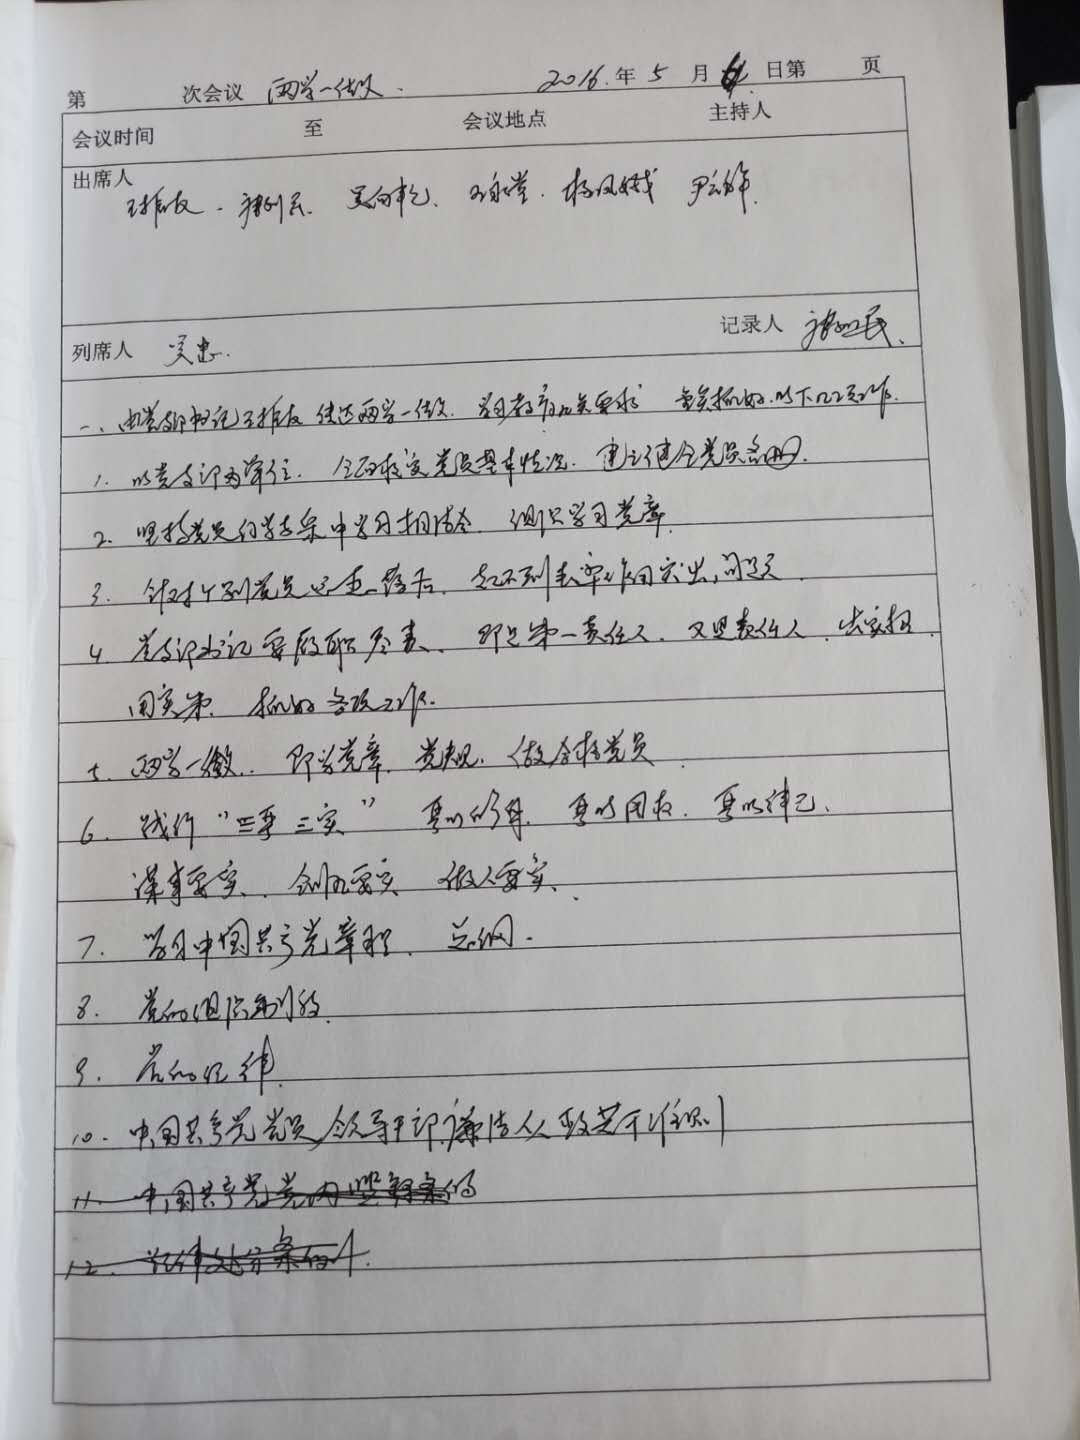 第 次会议 两学一做. 2016.年 5 月 日第 页
会议时间 至 会议地点 主持人
出席人
王振友. 杨凤娥
列席人 吴忠. 记录人 民.
一、由党支部书记王振友传达两学一做. 学习教育有关要求 抓好以下几项工作.
1. 以党支部为单位. 全面核实党员基本情况. 建立健全党员名册.
2. 坚持党员自学与集中学习相结合. 组织学习党章.
3. 针对个别党员思想落后. 起不到表率作用突出问题.
4 党支部书记要履职尽责、 即是第一责任人. 又是责任人. 出实招.
用实策. 抓好各项工作.
5. 两学一做. 即学党章. 党规. 做合格党员.
6. 践行“三严三实” 严以修身. 严以用权. 严以律己.
谋事要实、 创业要实 做人要实、
7. 学习中国共产党章程. 总纲.
8. 党的组织制度.
9. 党的纪律.
10. 中国共产党党员领导干部廉洁从政若干准则
11. 中国共产党党内监督条例
12. 纪律处分条例.